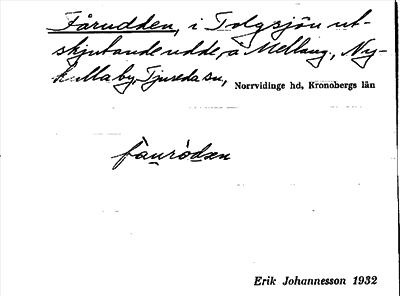 Fårudden, i Tolgsjön ut-
skjutande udde, å Mellang., Ny-
by, Tjureda sn, Norrvidinge hd, Kronobergs län
fåròdən
Erik Johannesson 1932